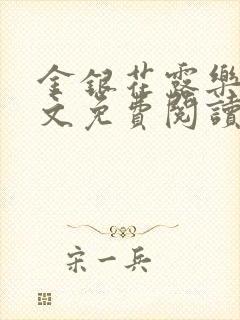 金銀花露樂
文免費閱讀
宋一兵